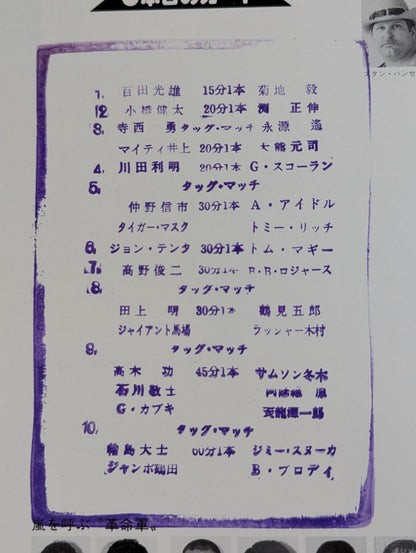 1. 百田光雄 15分1本 菊地 毅
2. 小橋健太 20分1本 渕 正伸
3. 寺西 勇 タッグ・マッチ 永源 遙
マイティ井上 20分1本 大熊元司
4. 川田利明 20分1本 G・スコーラン
5. タッグ・マッチ
仲野信市 30分1本 A・アイドル
タイガー・マスク トミー・リッチ
6. ジョン・テンタ 30分1本 トム・マギー
7. 高野俊二 30分1本 B・B・ロジャース
8. タッグ・マッチ
田上 明 30分1本 鶴見五郎
ジャイアント馬場 ラッシャー木村
9. タッグ・マッチ
高木 功 45分1本 サムソン冬木
石川敬士 原
G・カブキ 天龍源一郎
10. タッグ・マッチ
輪島大士 60分1本 ジミー・スヌーカ
ジャンボ鶴田 B・ブロディ
嵐を呼ぶ〝革命軍〟
スタン・ハンセ